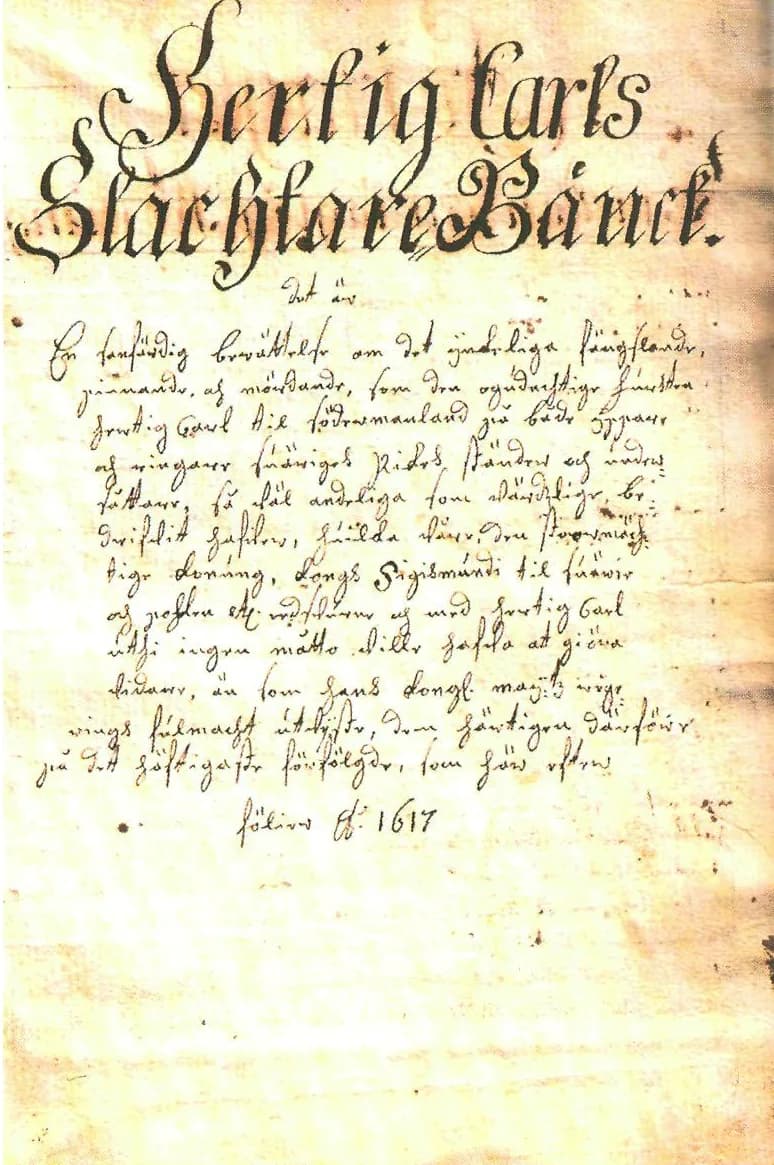 Hertig Carls
Slachtare Bänck.
det är
En sanfärdig berättelse om det ynkeliga fängslande,
pinande, och mördande, som den ogudachtige fursten
hertig Carl til Södermanland på både Höpare
och ringare Suäriges Rikes ständer och under¬
såttare, så väl andeliga som värdzlige, be¬
drifvit hafver, huilka våre, den stoormäch¬
tige konung, kongh Sigismundi til Suärie
och Pohlen etc. och med hertig Carl
uthi ingen måtto ville hafva att giöra
vidare, än som hans kongl. may:tz rege¬
rings fulmacht uthviste, dem härtigen därföre
på dett höftigaste förfölgde, som här efter
fölier A:o 1617